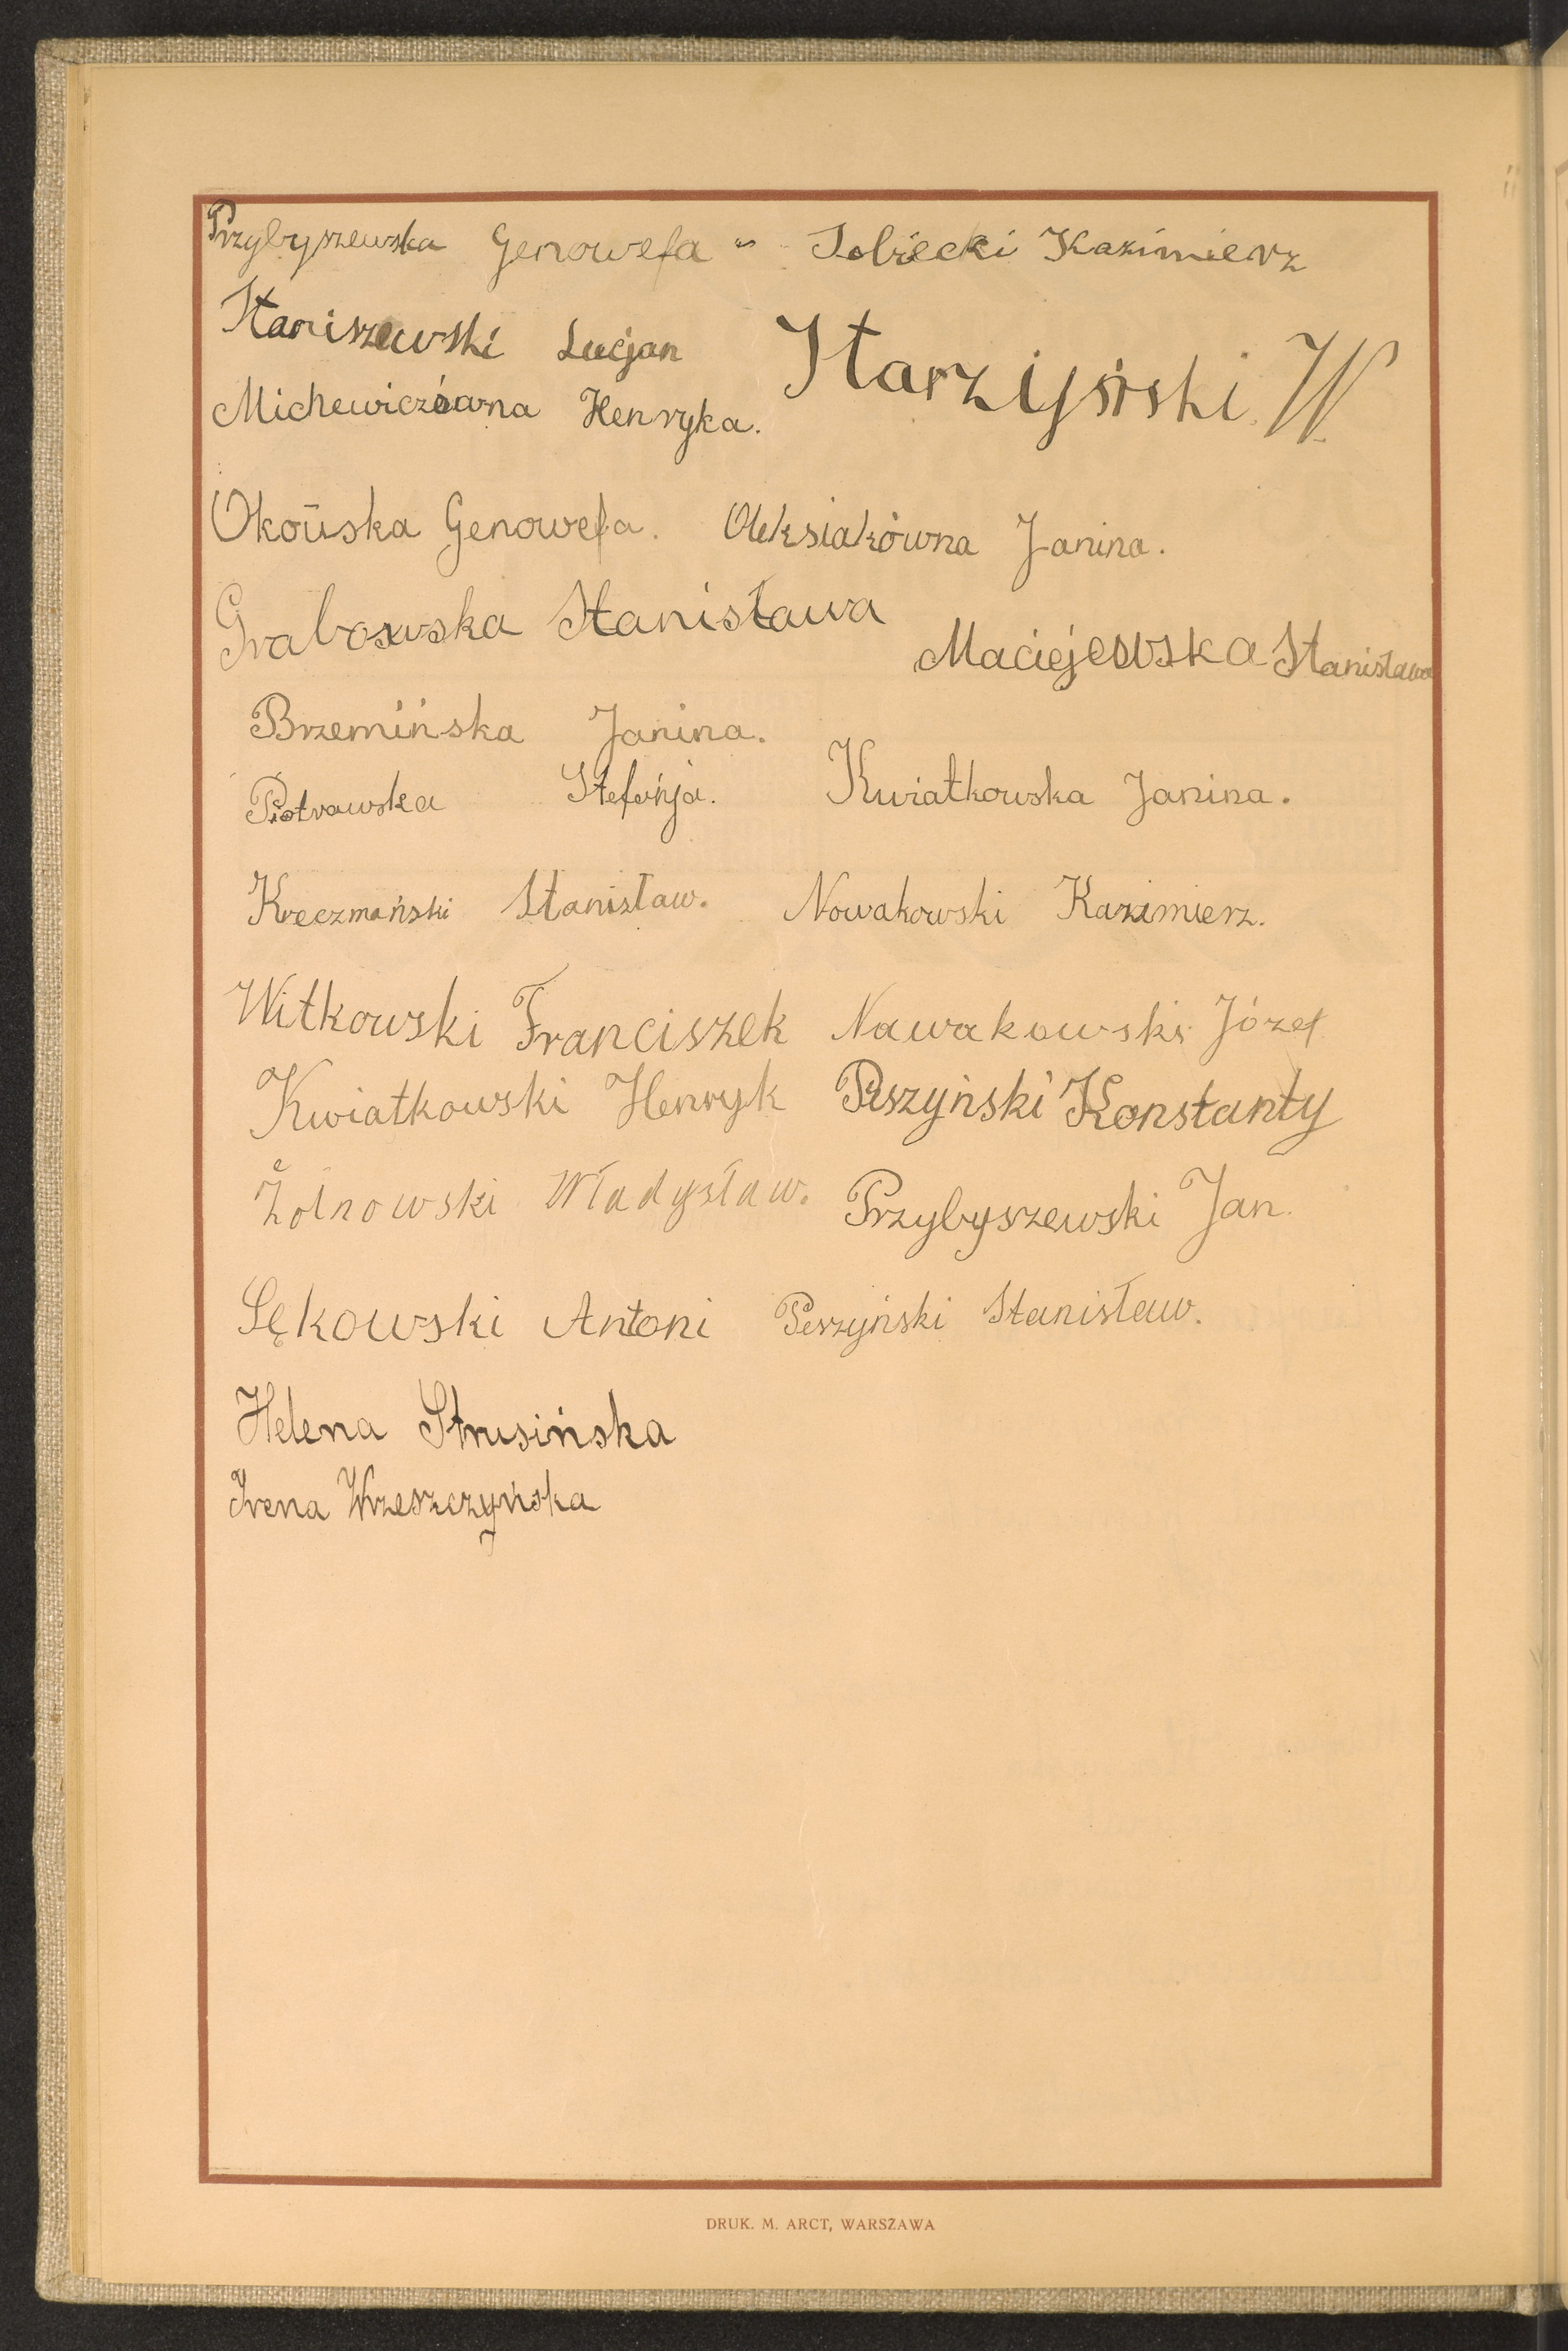 Przybyszewska Genowefa - Sobiecki Kazimierz
Staniszewski Lucjan
Starzyński W.
Michewiczówna Henryka.
Okońska Genowefa. Oleksiakówna Janina.
Grabowska Stanisława
Maciejewska Stanisława
Brzemińska Janina.
Piotrowska Stefańja. Kwiatkowska Janina.
Kreczmański Stanisław. Nowakowski Kazimierz.
Witkowski Franciszek Nawakowski Józef
Kwiatkowski Henryk Peszyński Konstanty
Żołnowski Władysław. Przybyszewski Jan.
Sękowski Antoni Peszyński Stanisław.
Helena Strusińska
Irena Wrzeszczyńska
DRUK. M. ARCT, WARSZAWA